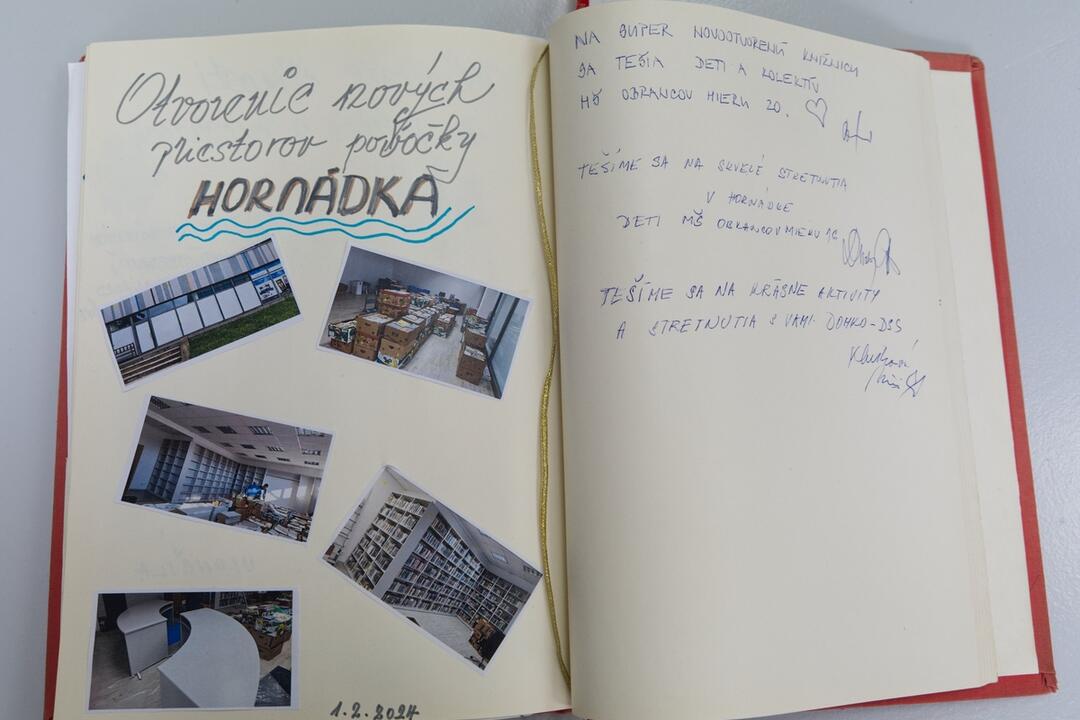 Otvorenie nových
priestorov pobočky
HORNÁDKA
1.2.2024
NA SUPER NOVOOTVORENÚ KNIŽNICU
SA TEŠIA DETI A KOLEKTÍV
MŠ OBRANCOV MIERU 20.
TEŠÍME SA NA SKVELÉ STRETNUTIA
V HORNÁDKE
DETI MŠ OBRANCOV MIERU 16
TEŠÍME SA NA KRÁSNE AKTIVITY
A STRETNUTIA S VAMI. DOMKO-DSS